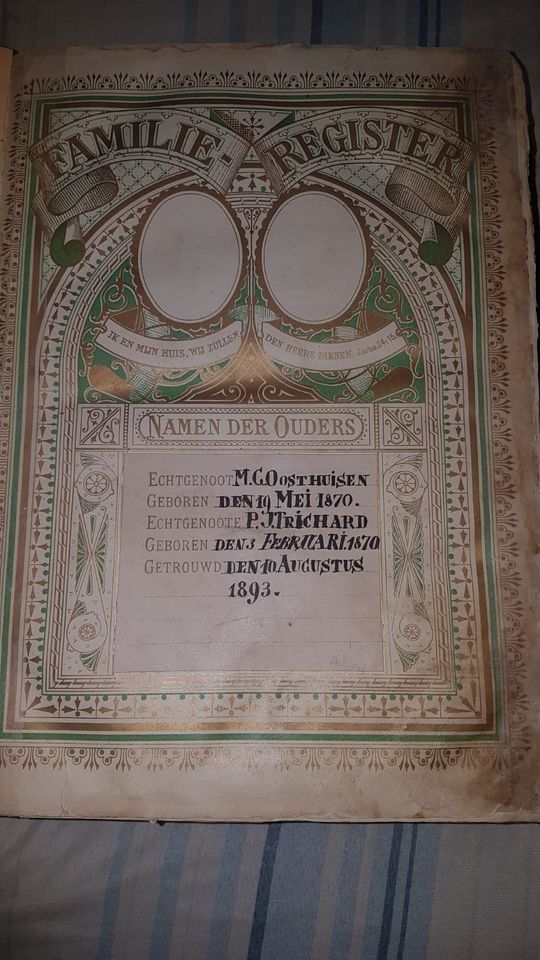 FAMILIE-REGISTER
IK EN MIJN HUIS, WIJ ZULLEN DEN HEERE DIENEN, Josua 24:15.
NAMEN DER OUDERS
ECHTGENOOT M.C.OOSTHUISEN
GEBOREN DEN 19 MEI 1870.
ECHTGENOOTE P.J.TRICHARD
GEBOREN DEN 3 FEBRUARI 1870
GETROUWD DEN 10 AUGUSTUS
1893.